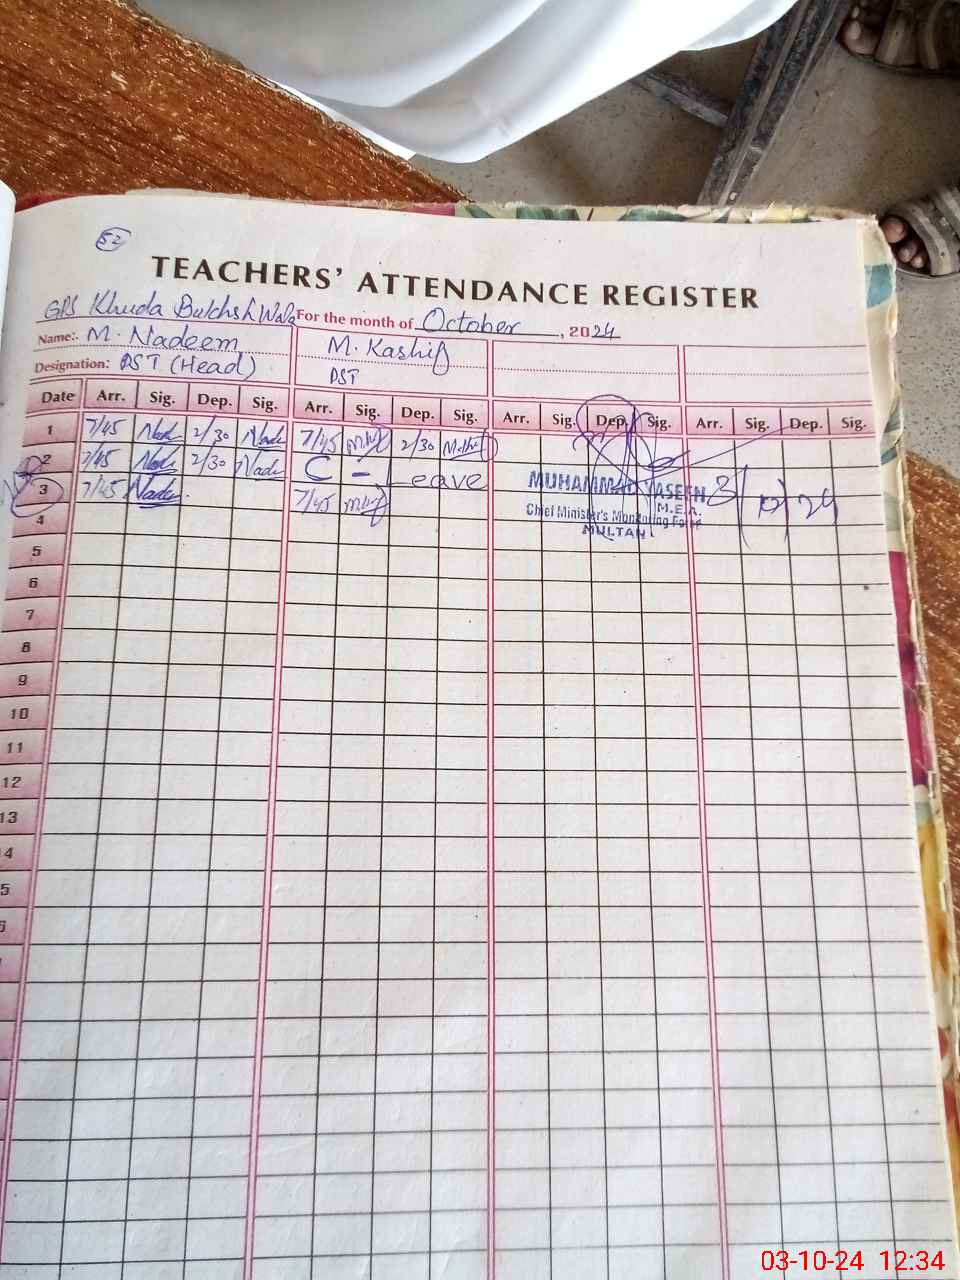 52
TEACHERS' ATTENDANCE REGISTER
GPS Khuda Bukhsh Wala For the month of October, 2024
Name:. M. Nadeem M. Kashif
Designation: PST (Head) PST
Date Arr. Sig. Dep. Sig. Arr. Sig. Dep. Sig. Arr. Sig. Dep. Sig. Arr. Sig. Dep. Sig.
1 7/45 Nade 2/30 Nade 7/45 2/30
2 7/45 Nade 2/30 Nade C - Leave
3 7/45 Nade 7/45
MUHAMMAD YASEEN 3/10/24
M.E.A.
Chief Minister's Monitoring Force
MULTAN
4
5
6
7
8
9
10
11
12
13
4
5
6
03-10-24 12:34